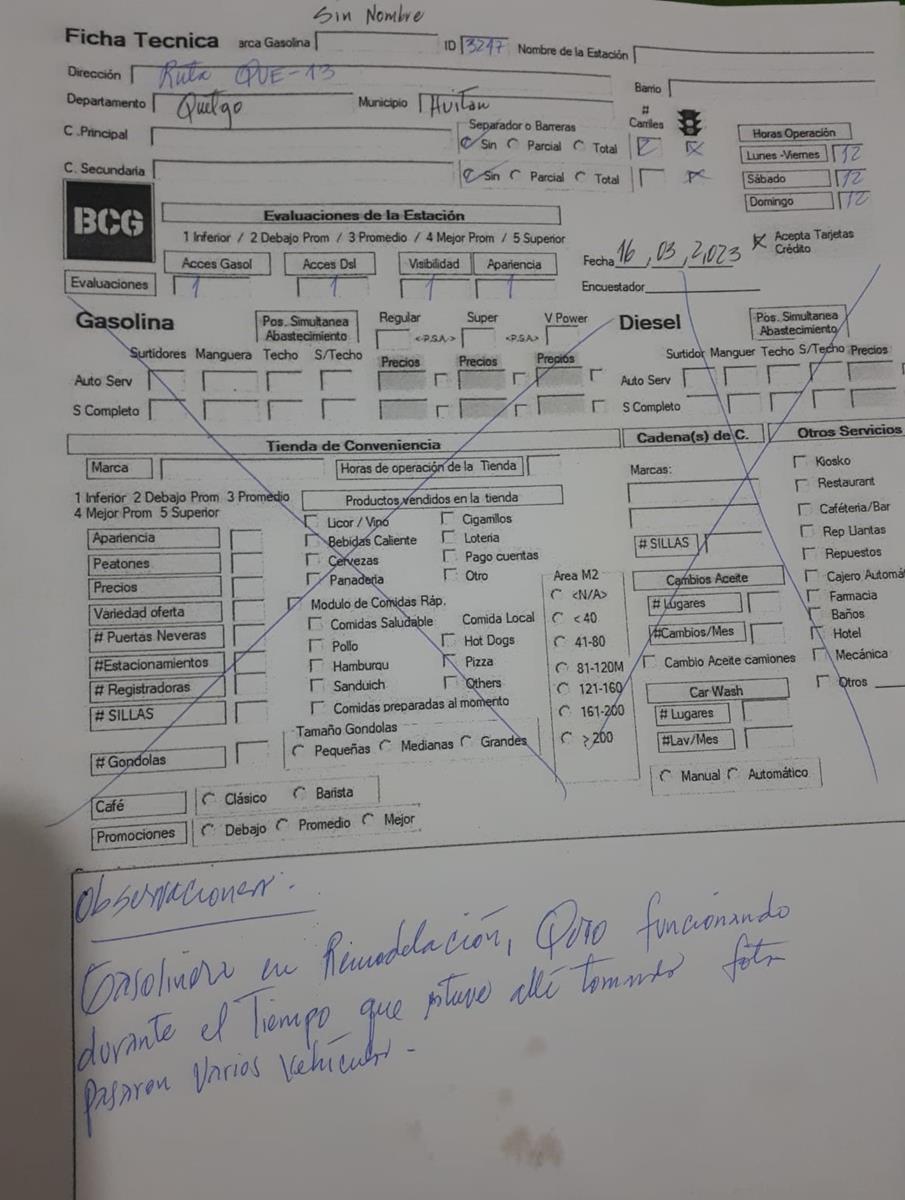 Sin Nombre
Ficha Tecnica arca Gasolina ID 3247 Nombre de la Estación
Dirección Ruta QUE-13 Barrio
Departamento Quetgo Municipio Huitan
# Carriles
C .Principal Separador o Barreras Sin Parcial Total 2 Horas Operación
Lunes -Viernes 12
C. Secundaria Sin Parcial Total Sábado 12
Domingo 12
BCG
Evaluaciones de la Estación
1 Inferior / 2 Debajo Prom / 3 Promedio / 4 Mejor Prom / 5 Superior
Acepta Tarjetas Crédito
Acces Gasol Acces Dsl Visibilidad Apariencia Fecha 16, 03, 2,023
Evaluaciones 1 1 1 1 Encuestador
Gasolina Pos. Simultanea Abastecimiento Regular <.P.S.A.> Super <.P.S.A> V Power Diesel Pos. Simultanea Abastecimiento
Surtidores Manguera Techo S/Techo Precios Precios Precios Surtidor Manguer Techo S/Techo Precios
Auto Serv Auto Serv
S Completo S Completo
Tienda de Conveniencia Cadena(s) de C. Otros Servicios
Marca Horas de operación de la Tienda Marcas: Kiosko
1 Inferior 2 Debajo Prom 3 Promedio Productos vendidos en la tienda Restaurant
4 Mejor Prom 5 Superior Licor / Vino Cigarrillos Caféteria/Bar
Apariencia Bebidas Caliente Loteria # SILLAS Rep Llantas
Peatones Cervezas Pago cuentas Repuestos
Precios Panaderia Otro Area M2 Cambios Aceite Cajero Automá
Variedad oferta Modulo de Comidas Ráp. <N/A> # Lugares Farmacia
# Puertas Neveras Comidas Saludable Comida Local < 40 #Cambios/Mes Baños
#Estacionamientos Pollo Hot Dogs 41-80 Hotel
# Registradoras Hamburqu Pizza 81-120M Cambio Aceite camiones Mecánica
# SILLAS Sanduich Others 121-160 Car Wash Otros
Comidas preparadas al momento 161-200 # Lugares
Tamaño Gondolas > 200 #Lav/Mes
# Gondolas Pequeñas Medianas Grandes
Manual Automático
Café Clásico Barista
Promociones Debajo Promedio Mejor
Observaciones:
Gasolinera en Remodelación, Pero funcionando
durante el Tiempo que estuve allí tomando foto
Pasaron Varios Vehículos-